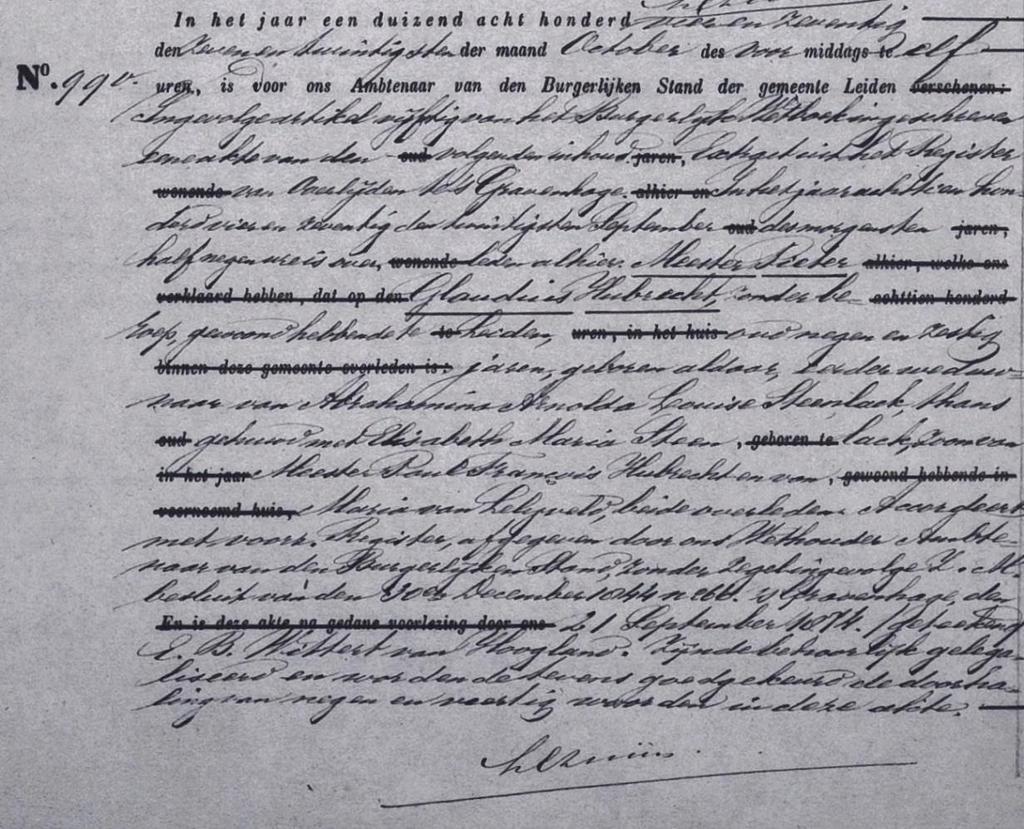 In het jaar een duizend acht honderd vier en zeventig
den zeven en twintigsten der maand October des voor middags te elf
No. 99 uren, is door ons Ambtenaar van den Burgerlijken Stand der gemeente Leiden verschenen:
Ingevolge artikel vijftig van het Burgerlijk Wetboek ingeschreven
eene akte van den oud volgenden inhoud jaren, Extract uit het Register
wonende van Overlijden te 's Gravenhage. alhier en In het jaar achttien hon-
derd vier en zeventig den twintigsten September oud des morgens ten jaren,
half negen ure is over, wonende leden alhier. Meester Pieter alhier, welke ons
verklaard hebben, dat op den Glaudius Hubrecht, zonder be- achttien honderd
roep, gewoond hebbende te te Leiden, uren, in het huis oud negen en zestig
binnen deze gemeente overleden is: jaren, geboren aldaar, eerder weduw-
naar van Abrahamina Arnolda Louise Steenlack, thans
oud gehuwd met Elisabeth Maria Steen, geboren te lack, zoon van
in het jaar Meester Paul François Hubrecht en van, gewoond hebbende in
voornoemd huis, Maria van Lelyveld, beide overleden. Accordeert
met voorz. Register, afgegeven door ons Wethouder Ambte-
naar van den Burgerlijken Stand, zonder zegel ingevolge Z. M.
besluit van den 30en December 1844 no 66. 's Gravenhage, den
En is deze akte na gedane voorlezing door ons 21 September 1874. (geteekend)
E. B. Wittert van Hoogland. Zijnde behoorlijk gelega-
liseerd en worden de tevens goedgekeurd de doorha-
ling van negen en veertig woorden in deze akte.